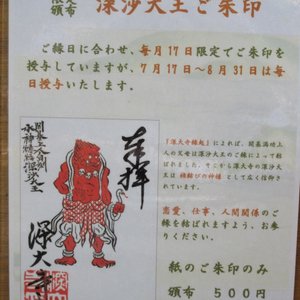 限定
頒布
深沙大王ご朱印
ご縁日に合わせ、毎月17日限定でご朱印を
授与していますが、7月17日～8月31日は毎
日授与いたします。
奉拝
深大寺
『深大寺縁起』によれば、開基満功上
人の父母は深沙大王のご縁によって結
ばれました。そこから深大寺の深沙大
王は 縁結びの神様 として広く信仰さ
れています。
恋愛、仕事、人間関係のご
縁を結ばれますよう、お参
りください。
紙のご朱印のみ
頒布 500円